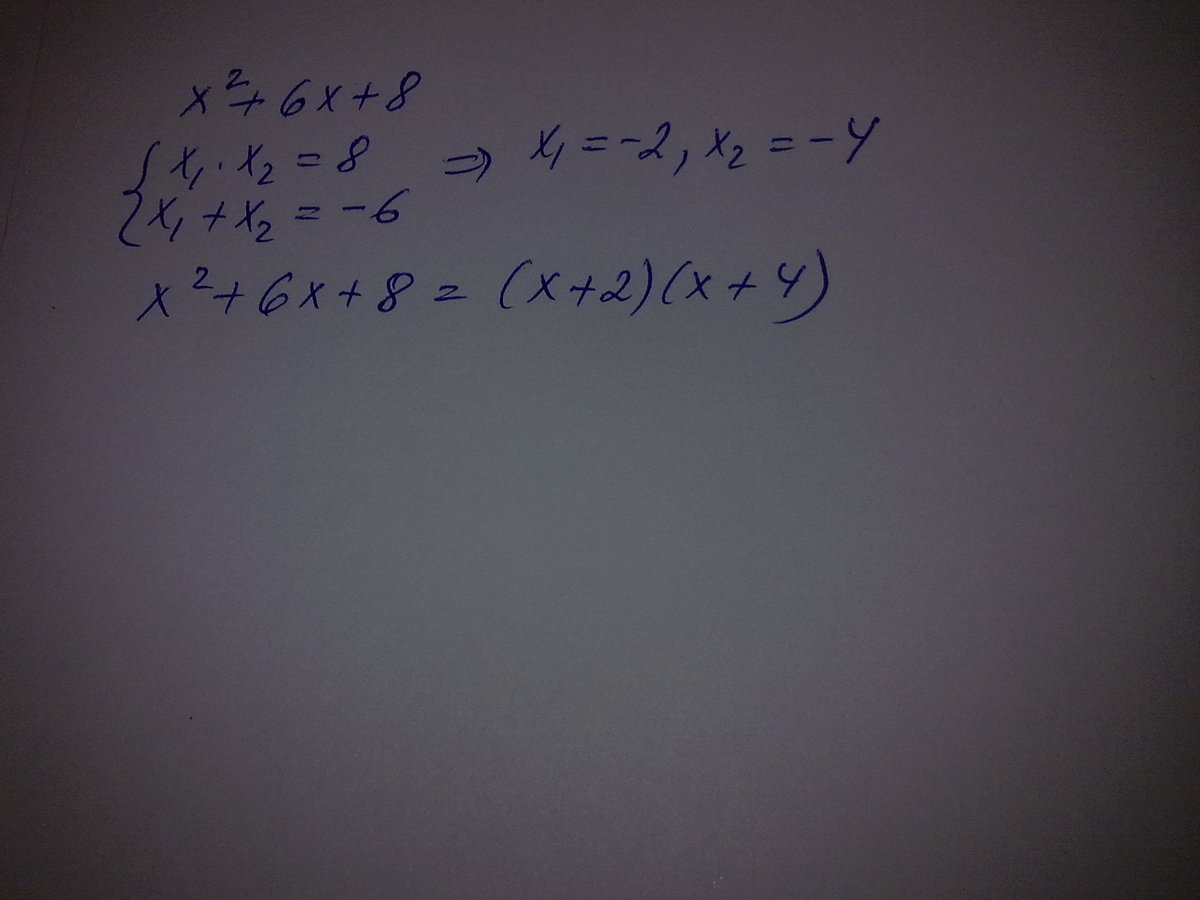 x² + 6x + 8
{ x₁ · x₂ = 8 ⇒ x₁ = -2, x₂ = -4
{ x₁ + x₂ = -6
x² + 6x + 8 = (x+2)(x+4)